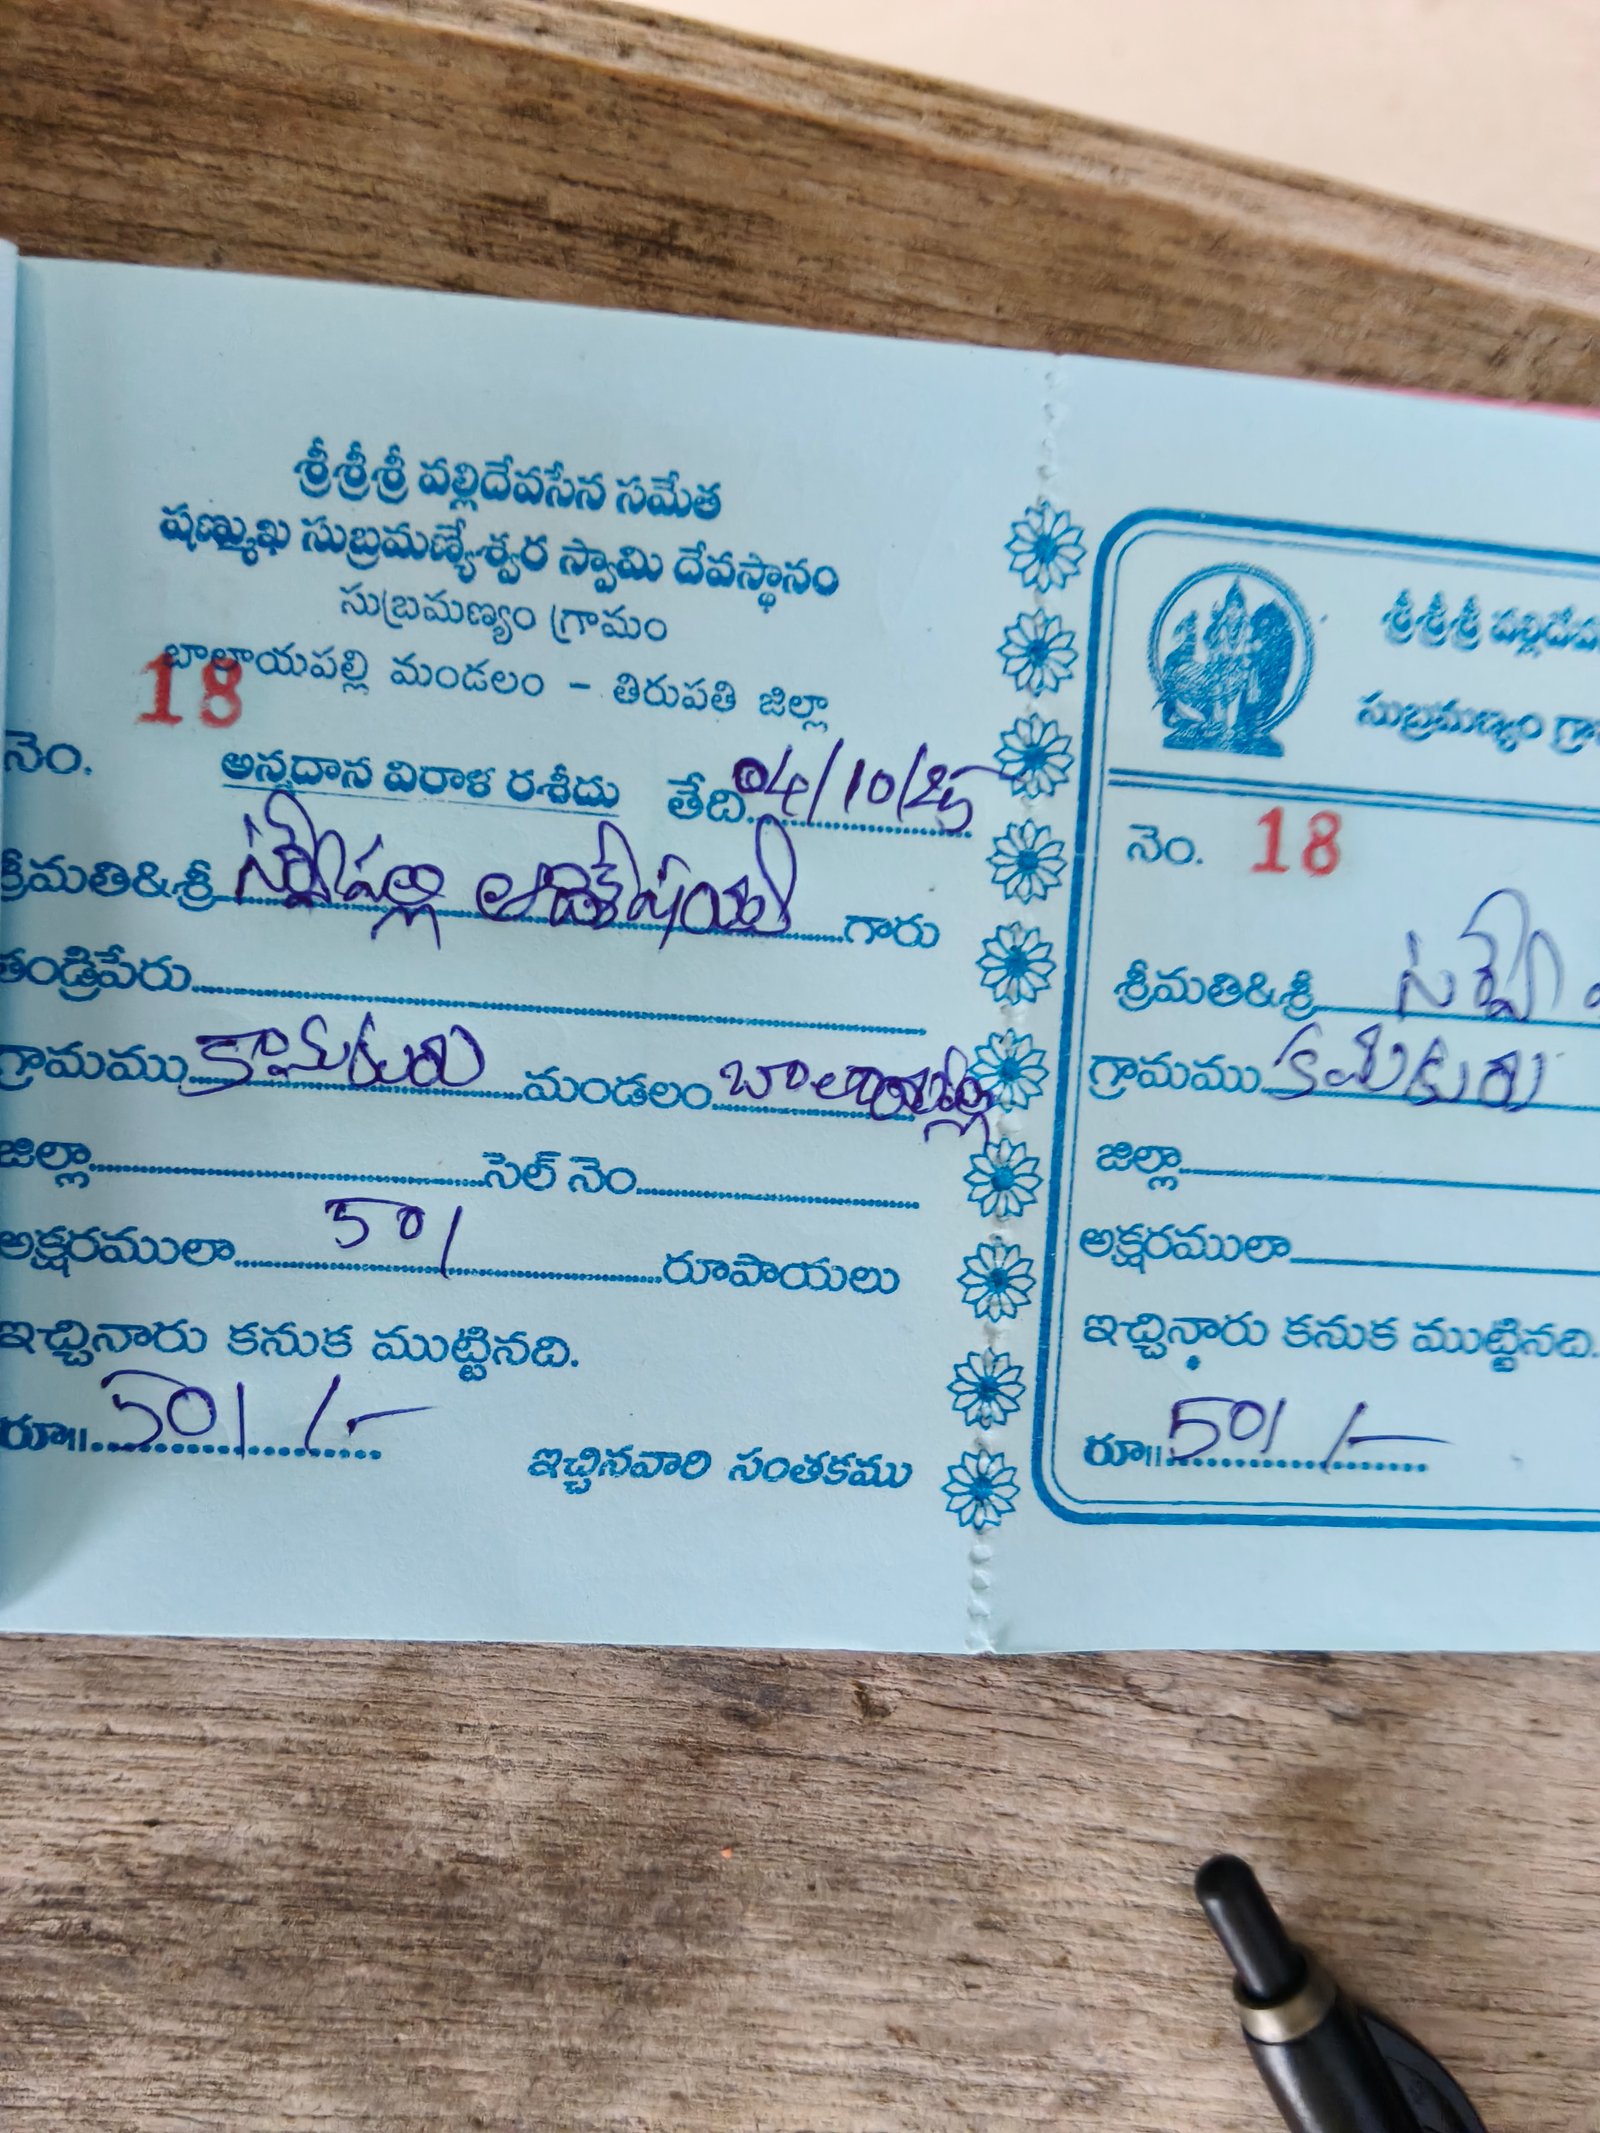 శ్రీశ్రీశ్రీ వల్లిదేవసేన సమేత
షణ్ముఖ సుబ్రమణ్యేశ్వర స్వామి దేవస్థానం
సుబ్రమణ్యం గ్రామం
బాలాయపల్లి మండలం - తిరుపతి జిల్లా
18
నెం.
అన్నదాన విరాళ రశీదు తేది. 04/10/25
శ్రీమతి&శ్రీ గారు
తండ్రిపేరు
గ్రామము మండలం బాలాయపల్లి
జిల్లా సెల్ నెం
అక్షరములా 501 రూపాయలు
ఇచ్చినారు కనుక ముట్టినది.
రూ॥ 501/-
ఇచ్చినవారి సంతకము
శ్రీశ్రీశ్రీ
సుబ్రమణ్యం
నెం. 18
శ్రీమతి&శ్రీ
గ్రామము
జిల్లా
అక్షరములా
ఇచ్చినారు కనుక ముట్టినది.
రూ॥ 501/-